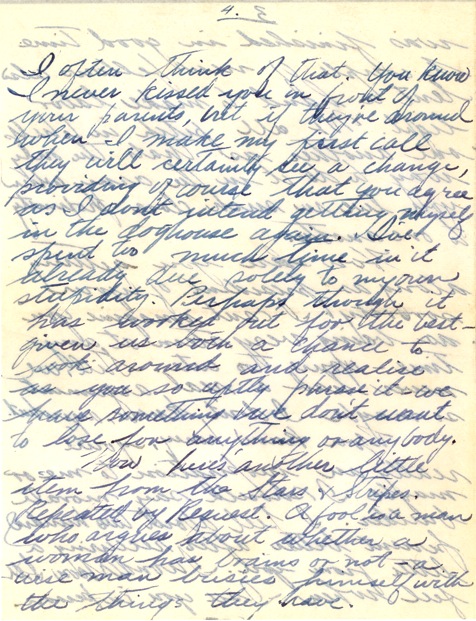 4.
I often think of that. You know
I never kissed you in front of
your parents, but if they're around
when I make my first call
they will certainly see a change,
providing of course that you agree
as I don't intend getting myself
in the doghouse again. I've
spent too much time in it
already due solely to my own
stupidity. Perhaps though it
has worked out for the best -
given us both a chance to
look around and realize
as you so aptly phrase it - we
have something we don't want
to lose for anything or anybody.
Now here's another little
item from the Stars & Stripes.
Repeated by Request. A fool is a man
who argues about whether a
woman has brains or not - a
wise man busies himself with
the things they have.